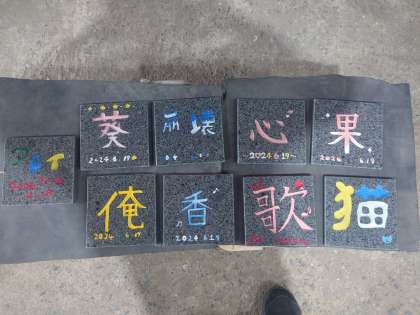 葵
2024.6.19
崩壊
心
2024 6.19
果
2024 6.19
俺
2024 6.19
香
2024 6.19
歌
猫